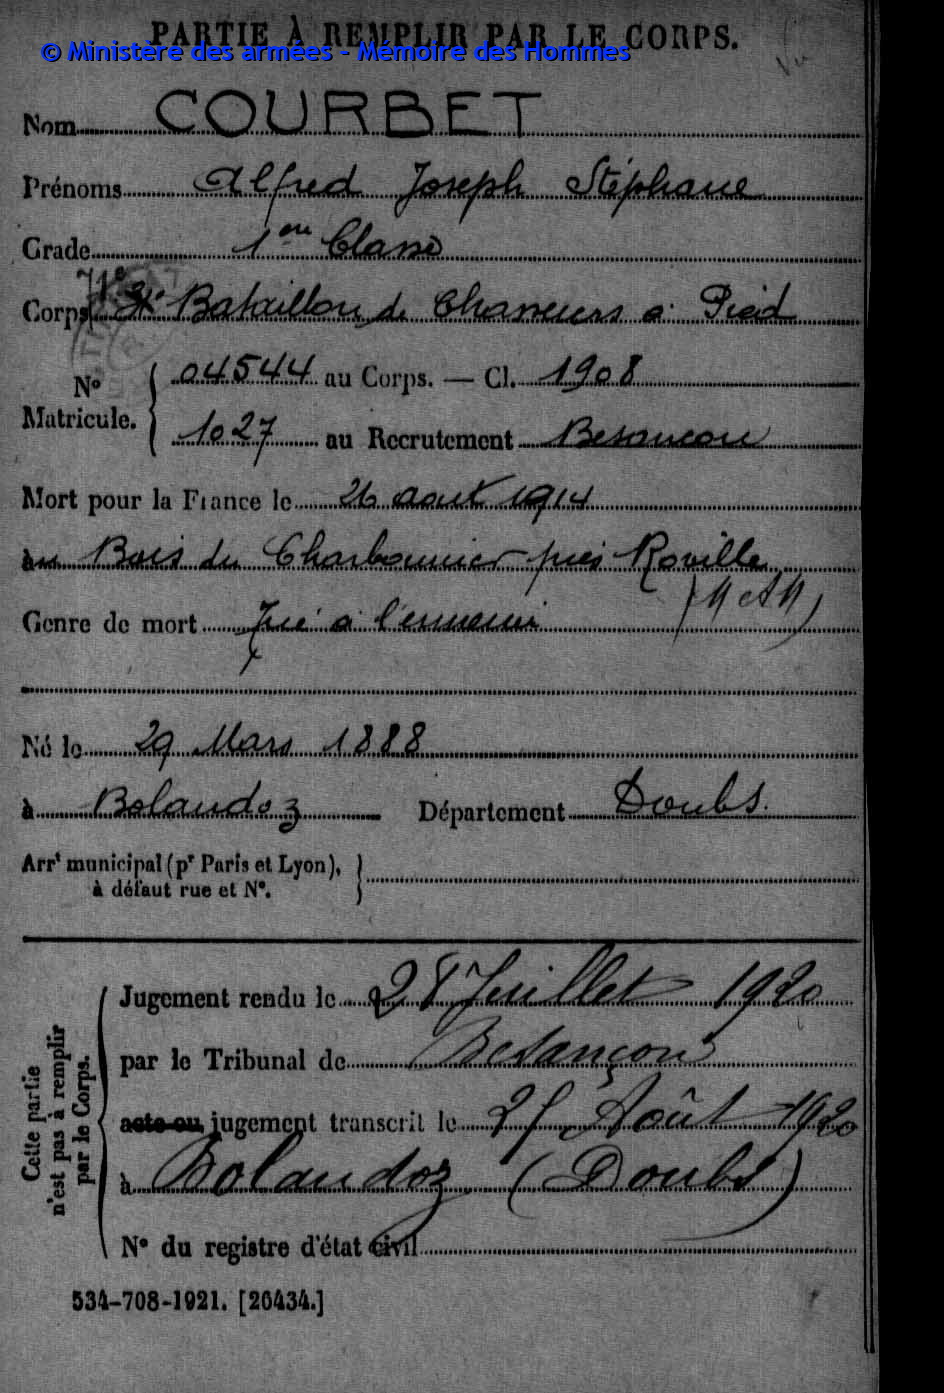 PARTIE À REMPLIR PAR LE CORPS.
© Ministère des armées - Mémoire des Hommes
Nom COURBET
Prénoms Alfred Joseph Stéphane
Grade 1ere Classe
Corps Bataillon de Chasseurs à Pied
N° Matricule. 04544 au Corps. — Cl. 1908
1027 au Recrutement Besançon
Mort pour la France le 26 aout 1914
au Bois du Charbonnier près Roville
(M et M)
Genre de mort Tué à l'ennemi
Né le 29 Mars 1888
à Bolandoz Département Doubs.
Arrt municipal (pr Paris et Lyon),
à défaut rue et N°.
Cette partie n'est pas à remplir par le Corps.
Jugement rendu le 28 Juillet 1920
par le Tribunal de Besançon
acte ou jugement transcrit le Août 1920
à Bolandoz (Doubs)
N° du registre d'état civil
534-708-1921. [26434.]